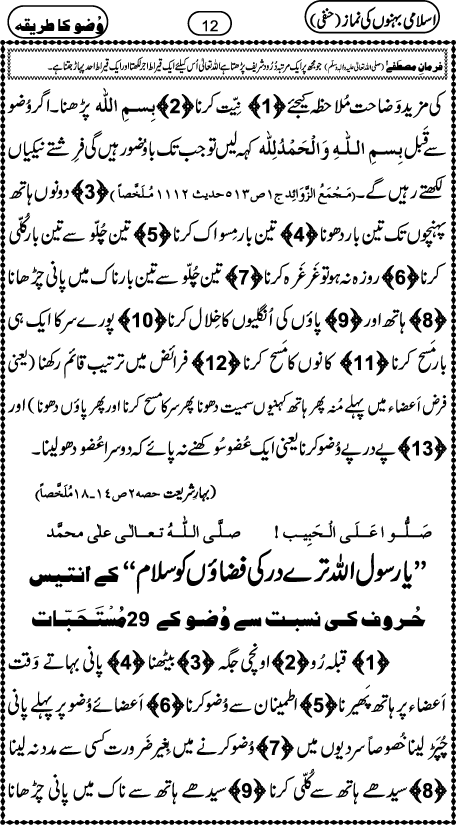 اسلامی بہنوں کی نماز (حنفی) 12 وُضو کا طریقہ
فرمانِ مصطفےٰ (صلی اللہ تعالیٰ علیہ والہ وسلم) جو مجھ پر ایک مرتبہ دُرود شریف پڑھتا ہے اللہ تعالیٰ اُس کیلئے ایک قیراط اجر لکھتا اور ایک قیراط احد پہاڑ جتنا ہے۔
کی مزید وَضاحت مُلاحَظہ کیجئے ﴿1﴾ نِیّت کرنا ﴿2﴾ بِسمِ اللّٰه پڑھنا۔ اگر وُضو
سے قَبل بِسمِ اللّٰهِ وَالْحَمْدُلِلّٰه کہہ لیں تو جب تک باوُضور ہیں گی فرِشتے نیکیاں
لکھتے رہیں گے۔ (مَجْمَعُ الزَّوَائِد ج۱ ص۵۱۳ حدیث ۱۱۱۲ مُلَخَّصاً) ﴿3﴾ دونوں ہاتھ
پہنچوں تک تین بار دھونا ﴿4﴾ تین بار مِسواک کرنا ﴿5﴾ تین چُلّو سے تین بار کُلّی
کرنا ﴿6﴾ روزہ نہ ہو تو غَرغَرہ کرنا ﴿7﴾ تین چُلّو سے تین بار ناک میں پانی چڑھانا
﴿8﴾ ہاتھ اور ﴿9﴾ پاؤں کی اُنگلیوں کا خِلال کرنا ﴿10﴾ پورے سر کا ایک ہی
بار مَسح کرنا ﴿11﴾ کانوں کا مَسح کرنا ﴿12﴾ فرائض میں ترتیب قائم رکھنا (یعنی
فرض اَعضاء میں پہلے مُنہ پھر ہاتھ کہنیوں سمیت دھونا پھر سر کا مسح کرنا اور پھر پاؤں دھونا) اور
﴿13﴾ پے در پے وُضو کرنا یعنی ایک عُضو سُوکھنے نہ پائے کہ دوسرا عُضو دھو لینا۔
(بہارِ شریعت حصہ ۲ ص ۱۴۔۱۸ مُلَخَّصاً)
صَلُّوا عَلَی الْحَبِیب! صلَّی اللّٰهُ تعالیٰ علیٰ محمَّد
”یا رسول اللہ ترے در کی فضاؤں کو سلام“ کے انتیس
حُروف کی نسبت سے وُضو کے 29 مُسْتَحَبّات
﴿1﴾ قبلہ رُو ﴿2﴾ اونچی جگہ ﴿3﴾ بیٹھنا ﴿4﴾ پانی بہاتے وَقت
اَعضاء پر ہاتھ پھیرنا ﴿5﴾ اطمینان سے وُضو کرنا ﴿6﴾ اَعضائے وُضو پر پہلے پانی
چُپڑ لینا خُصوصاً سردیوں میں ﴿7﴾ وُضو کرنے میں بغیر ضَرورت کسی سے مدد نہ لینا
﴿8﴾ سیدھے ہاتھ سے کُلّی کرنا ﴿9﴾ سیدھے ہاتھ سے ناک میں پانی چڑھانا